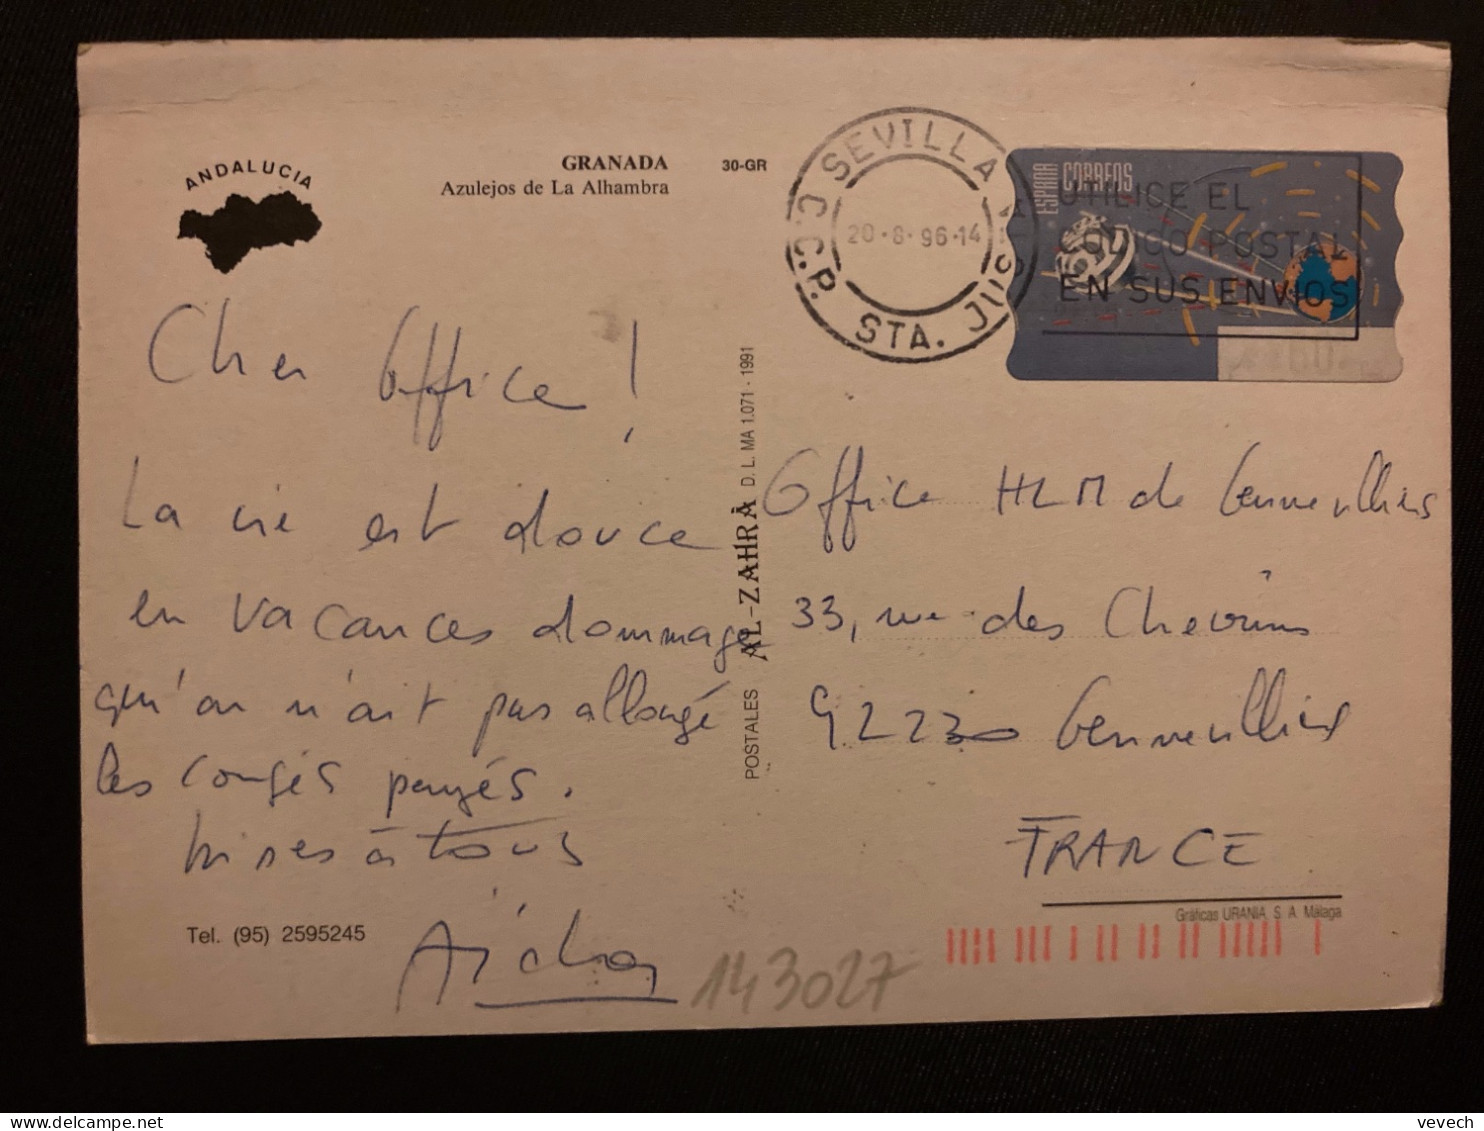 ANDALUCIA
GRANADA
Azulejos de La Alhambra
30-GR
SEVILLA
C.C.P. STA. JUSTA
20-8-96-14
ESPAÑA CORREOS
UTILICE EL
CODIGO POSTAL
EN SUS ENVIOS
Cher Office !
La vie est douce
en vacances dommage
qu'on n'ait pas allongé
les congés payés.
Bises à tous
Tel. (95) 2595245
POSTALES AL-ZAHRÀ D. L. MA 1.071 - 1991
Office HLM de Gennevilliers
33, rue des Chevrins
92230 Gennevilliers
FRANCE
Gráficas URANIA, S. A. Málaga
143027
vevech